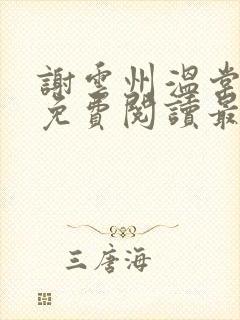 謝雲州溫棠
免費閱讀最
三唐海